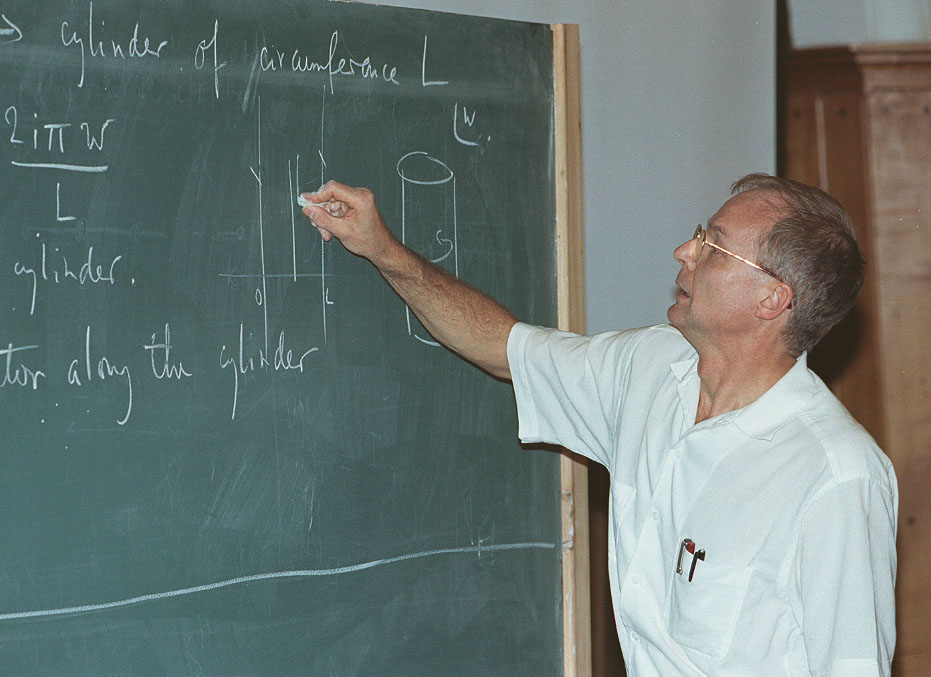 → cylinder of circumference L
2iπ w
L
w
cylinder.
O L
tor along the cylinder